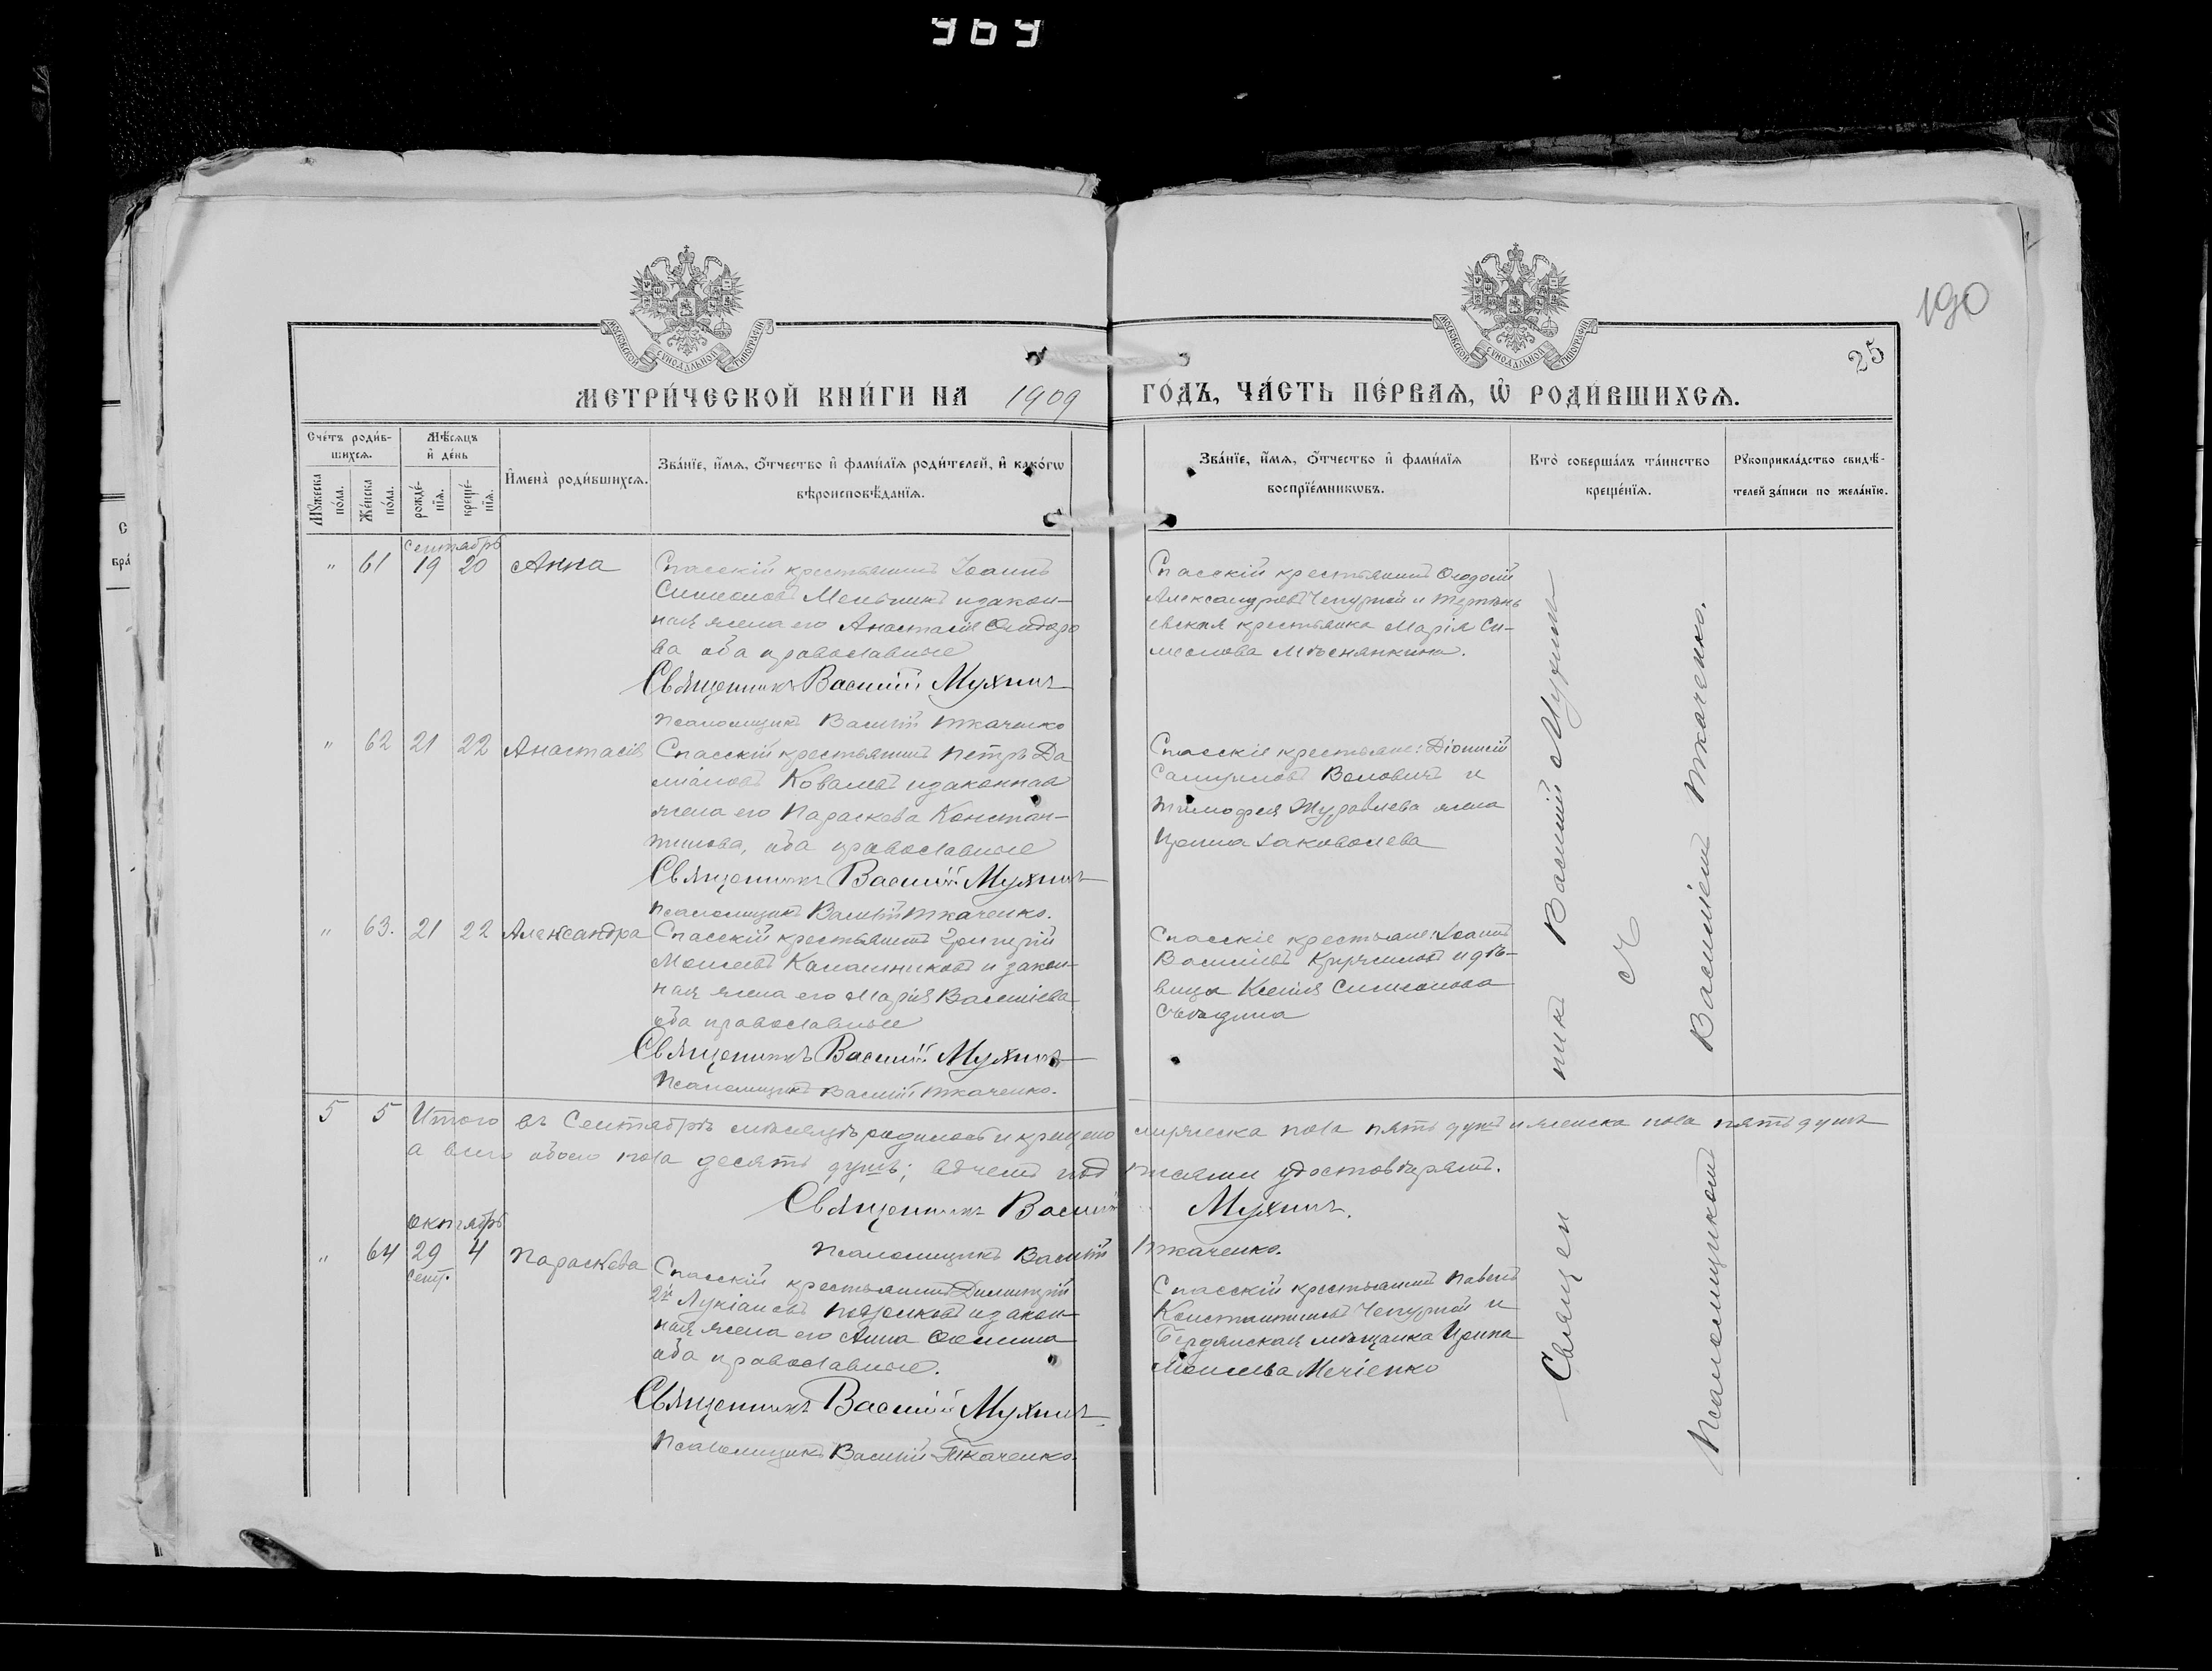 969
190
25
МОСКОВСКОЙ СѴНОДАЛЬНОЙ ТИПОГРАФІИ
МОСКОВСКОЙ СѴНОДАЛЬНОЙ ТИПОГРАФІИ
МЕТРИ́ЧЕСКОЙ КНИ́ГИ НА 1909 ГО́ДЪ, ЧА́СТЬ ПЕ́РВАѦ, Ѡ҆ РОДИ́ВШИХСѦ.
Сче́тъ роди́в-
шихсѧ.
Мꙋ́жеска по́ла.
Же́нска по́ла.
Мѣ́сѧцъ
и҆ де́нь
рожде́-
нїѧ.
креще́-
нїѧ.
И҆мена̀ роди́вшихсѧ.
Зва́нїе, и҆́мѧ, ѻ҆́тчество и҆ фами́лїѧ роди́телей, и҆ како́гѡ
вѣроисповѣ́данїѧ.
Зва́нїе, и҆́мѧ, ѻ҆́тчество и҆ фами́лїѧ
воспрїе́мникѡвъ.
Кто̀ соверша́лъ та́инство
креще́нїѧ.
Рꙋкоприкла́дство свидѣ́-
телей за́писи по жела́нїю.
Сентябрь
" 61 19 20 Анна
Спасскій крестьянинъ Іоаннъ
Симеоновъ Мельникъ и закон-
ная жена его Анастасія Ѳеодоро
ва оба православные
Священникъ Василій Мухинъ
Псаломщикъ Василій Ткаченко
Спасскій крестьянинъ Ѳеодосій
Александровъ Чепурной и
крестьянка Марія Си-
меонова
" 62 21 22 Анастасія
Спасскій крестьянинъ Петръ Да
міановъ Ковалевъ и законная
жена его Параскева Констан-
тинова, оба православные
Священникъ Василій Мухинъ
Псаломщикъ Василій Ткаченко.
Спасскіе крестьяне: Діонисій
Самуиловъ Воловикъ и
Тимофея Журавлева жена
Ирина Іаковлева
" 63. 21 22 Александра
Спасскій крестьянинъ Григорій
Моисеевъ Калашниковъ и закон-
ная жена его Марія Васильева
оба православные
Священникъ Василій Мухинъ
Псаломщикъ Василій Ткаченко.
Спасскіе крестьяне: Іоаннъ
Васильевъ и дѣ-
вица Ксенія Симеонова
5 5 Итого въ Сентябрѣ мѣсяцѣ родилось и крещено мужеска пола пять душъ и женска пола пять душъ
а всего обоего пола десять душъ; въ чемъ подписями удостовѣряемъ.
Священникъ Василій Мухинъ.
Псаломщикъ Василій Ткаченко.
октябрь
" 64 29 4 Параскева
Сент.
Спасскій крестьянинъ Димитрій
2й Лукіановъ и закон-
ная жена его Анна Ѳомина
оба православные.
Священникъ Василій Мухинъ
Псаломщикъ Василій Ткаченко.
Спасскій крестьянинъ Павелъ
Константиновъ Чепурной и
Бердянская мѣщанка Ирина
Моисеева
Священникъ Василій Мухинъ
съ
Псаломщикомъ Василіемъ Ткаченко.
С
бра́